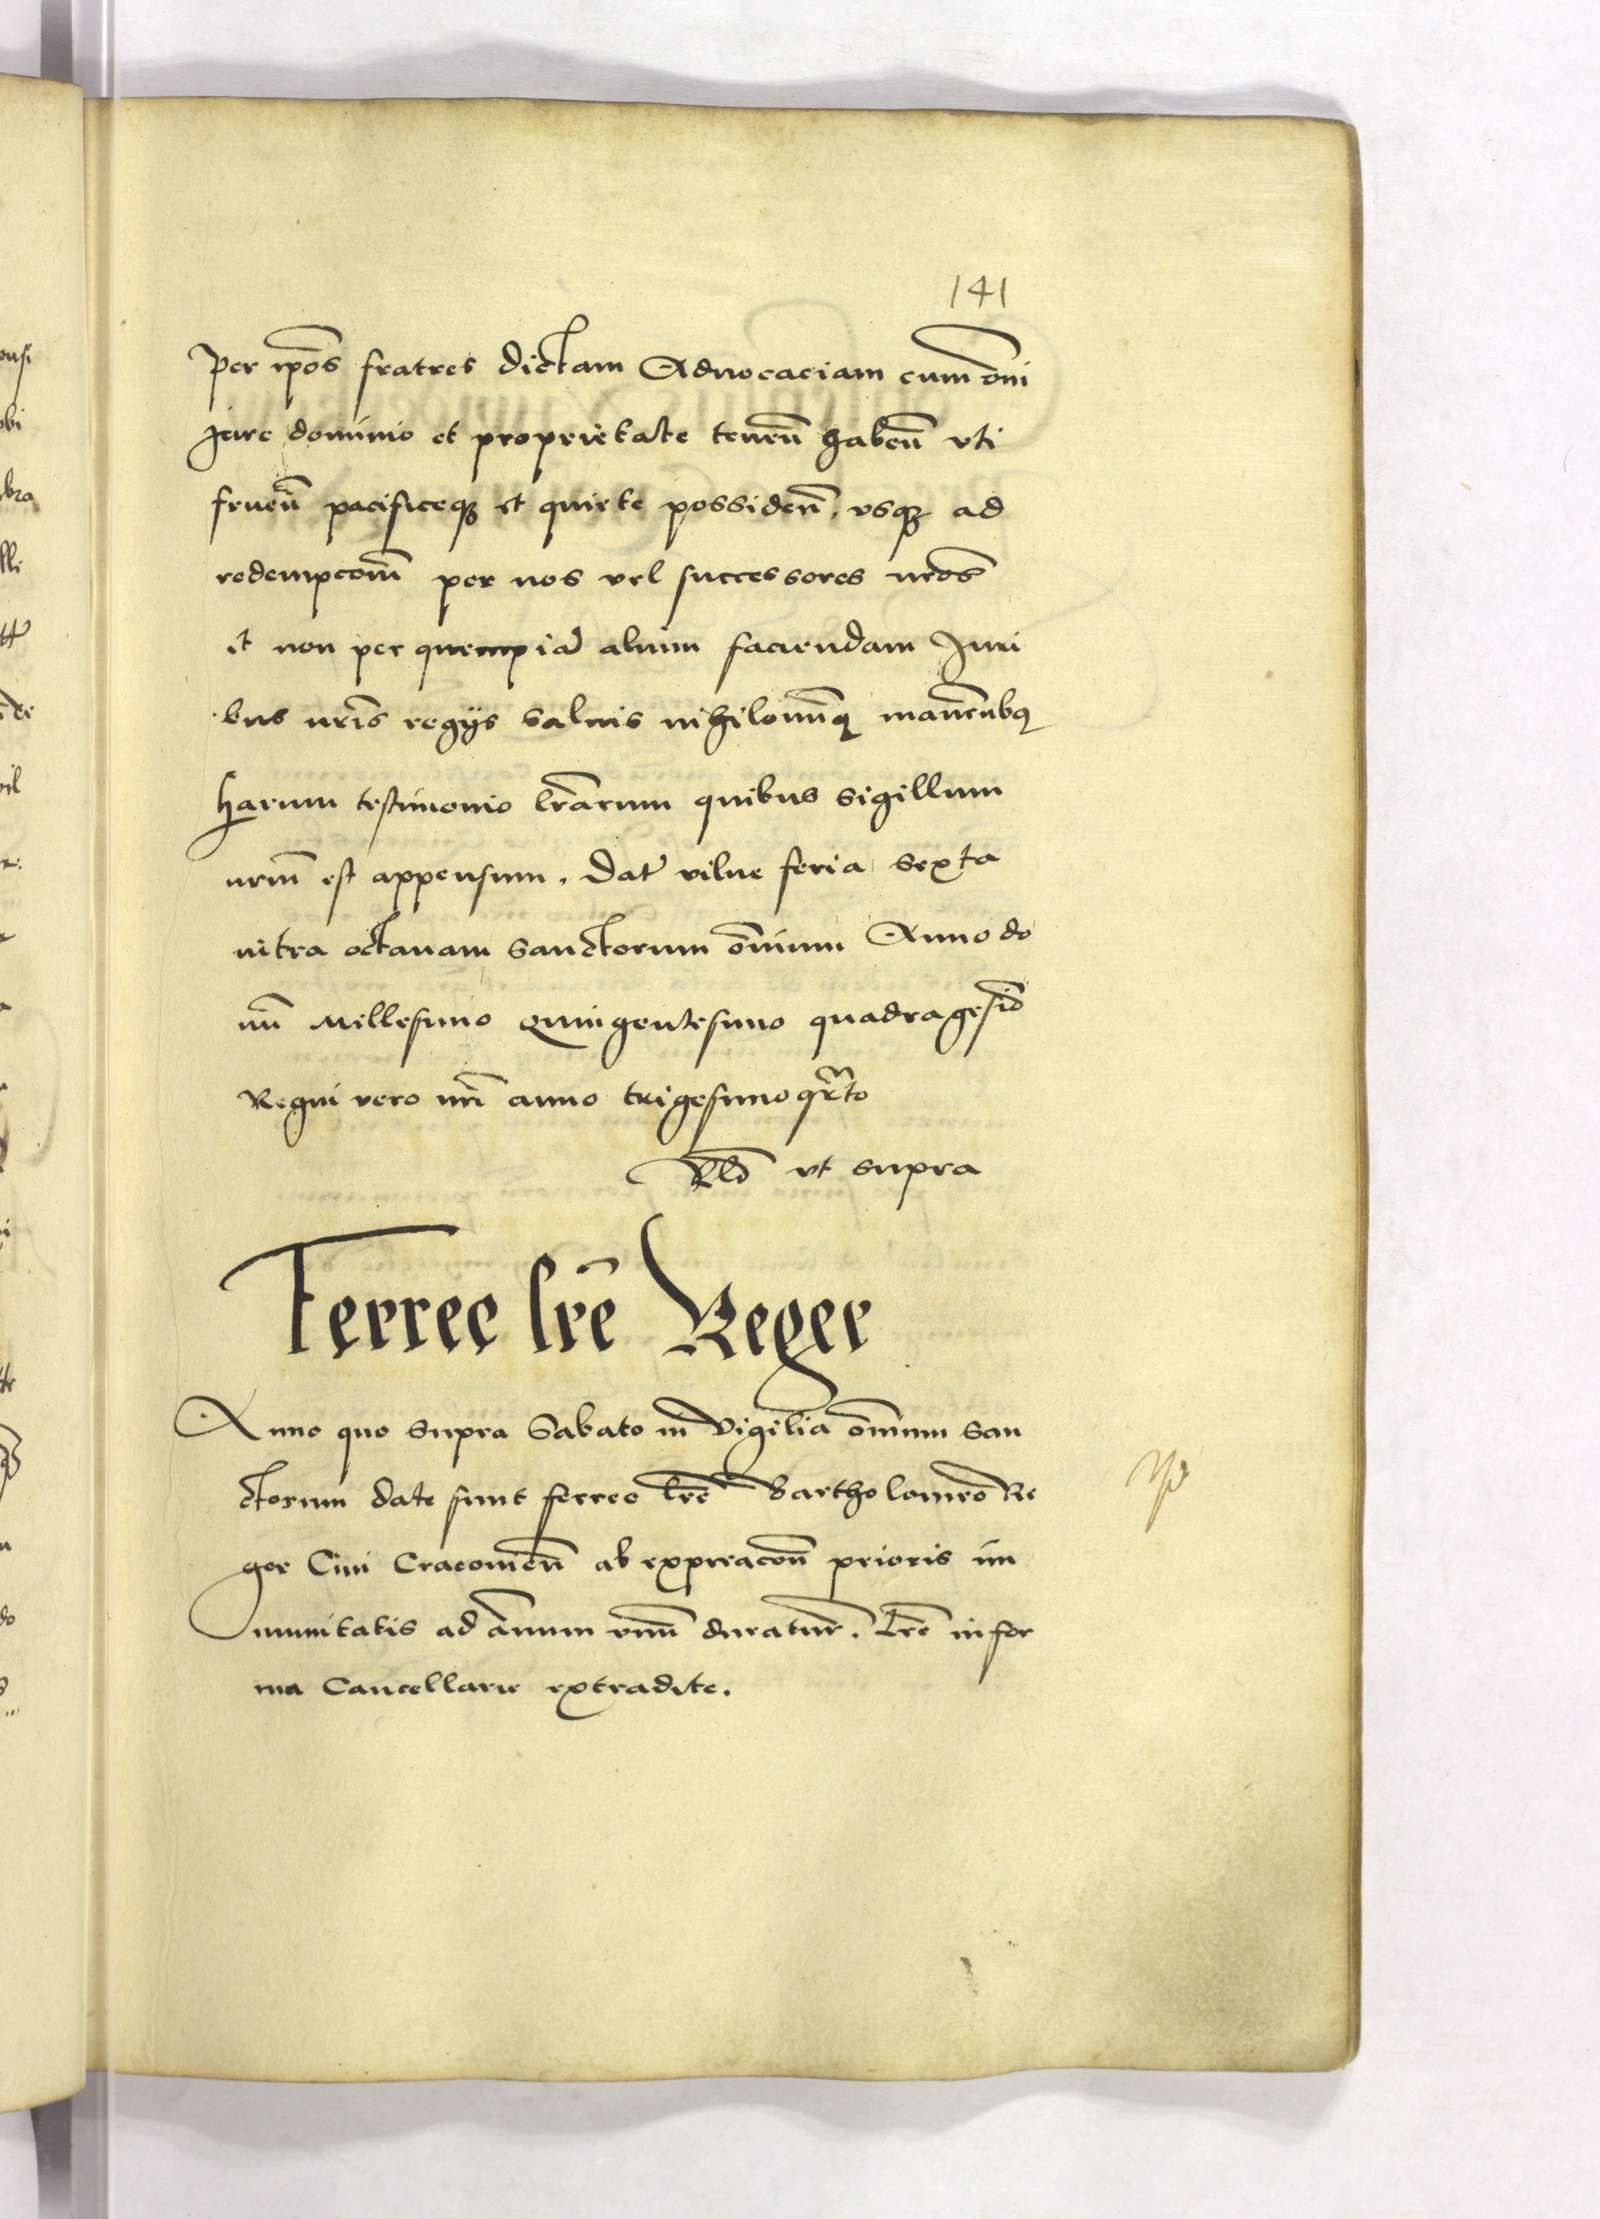 141
Per ip̄os fratres dictam Aduocaciam cum om̄i
Jure dominio et proprietate teneñ habeñ vti
frueñ pacificeqꝫ et quiete possideñ, vsqꝫ ad
redempcom̄ per nos vel successores nr̄os
et non per quempiā alium faciendam Juri
bus nr̄is regijs saluis nihilomīꝗ maneñtibꝗ
Harum testimonio lr̄arum quibus sigillum
nrm̄ est appensum. Dat̄ vilne feria sexta
intra octauam sanctorum om̄ium Anno do
mī Millesimo Quingentesimo quadragesīo
Regni vero nr̄i anno trigesimo qr̄to
Rl̄o vt supra
Ferree lr̄e Reger
Anno quo supra Sabato in Vigilia om̄ium san
ctorum date sunt ferree lr̄e Bartholomeo Re
ger Ciui Cracouien̄ ab expiracōn prioris im
munitatis ad annum vnū duratur̄. Lr̄e in for
ma Cancellarie extradite.